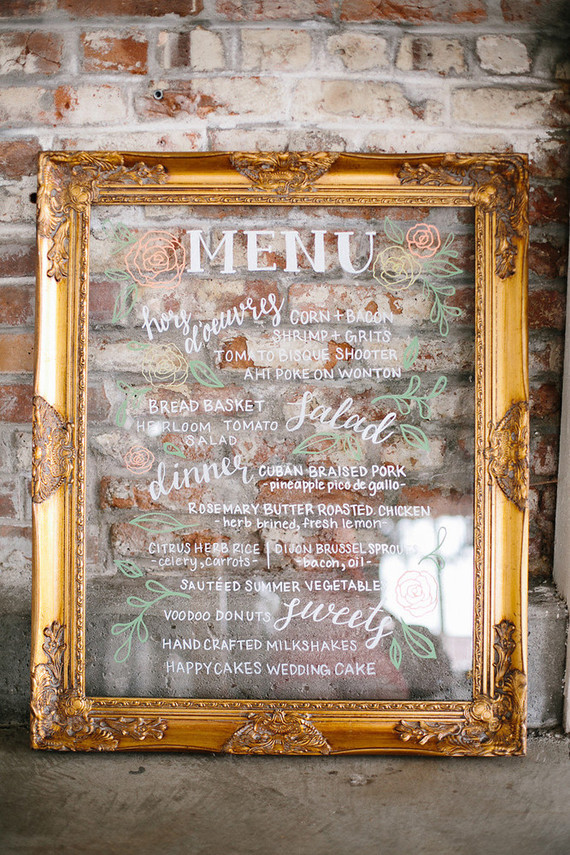 MENU
hors d'oeuvres
CORN + BACON
SHRIMP + GRITS
TOMATO BISQUE SHOOTER
AHI POKE ON WONTON
Salad
BREAD BASKET
HEIRLOOM TOMATO
SALAD
dinner
CUBAN BRAISED PORK
-pineapple pico de gallo-
ROSEMARY BUTTER ROASTED CHICKEN
-herb brined, fresh lemon-
CITRUS HERB RICE | DIJON BRUSSEL SPROUTS
-celery, carrots- | -bacon, oil-
SAUTÉED SUMMER VEGETABLE
sweets
VOODOO DONUTS
HAND CRAFTED MILKSHAKES
HAPPYCAKES WEDDING CAKE